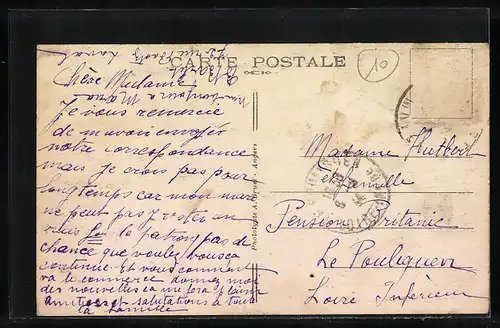 CARTE POSTALE
10
Chère Madame
Je vous remercie
de m'avoir envoyer
notre correspondance
mais je crois pas pour
longtemps car mon mari
ne peut pas rester on
vais le patron pas de
chance que voulez vous ca
continue. Et vous comment
va le commerce donnez moi
des nouvelles ca me fera plaisir
amities et salutations à tous
la famille
Phototypie - Angers
Madame Hutbert
et famille
Pension Britanic
Le Pouliguen
Loire Inférieure